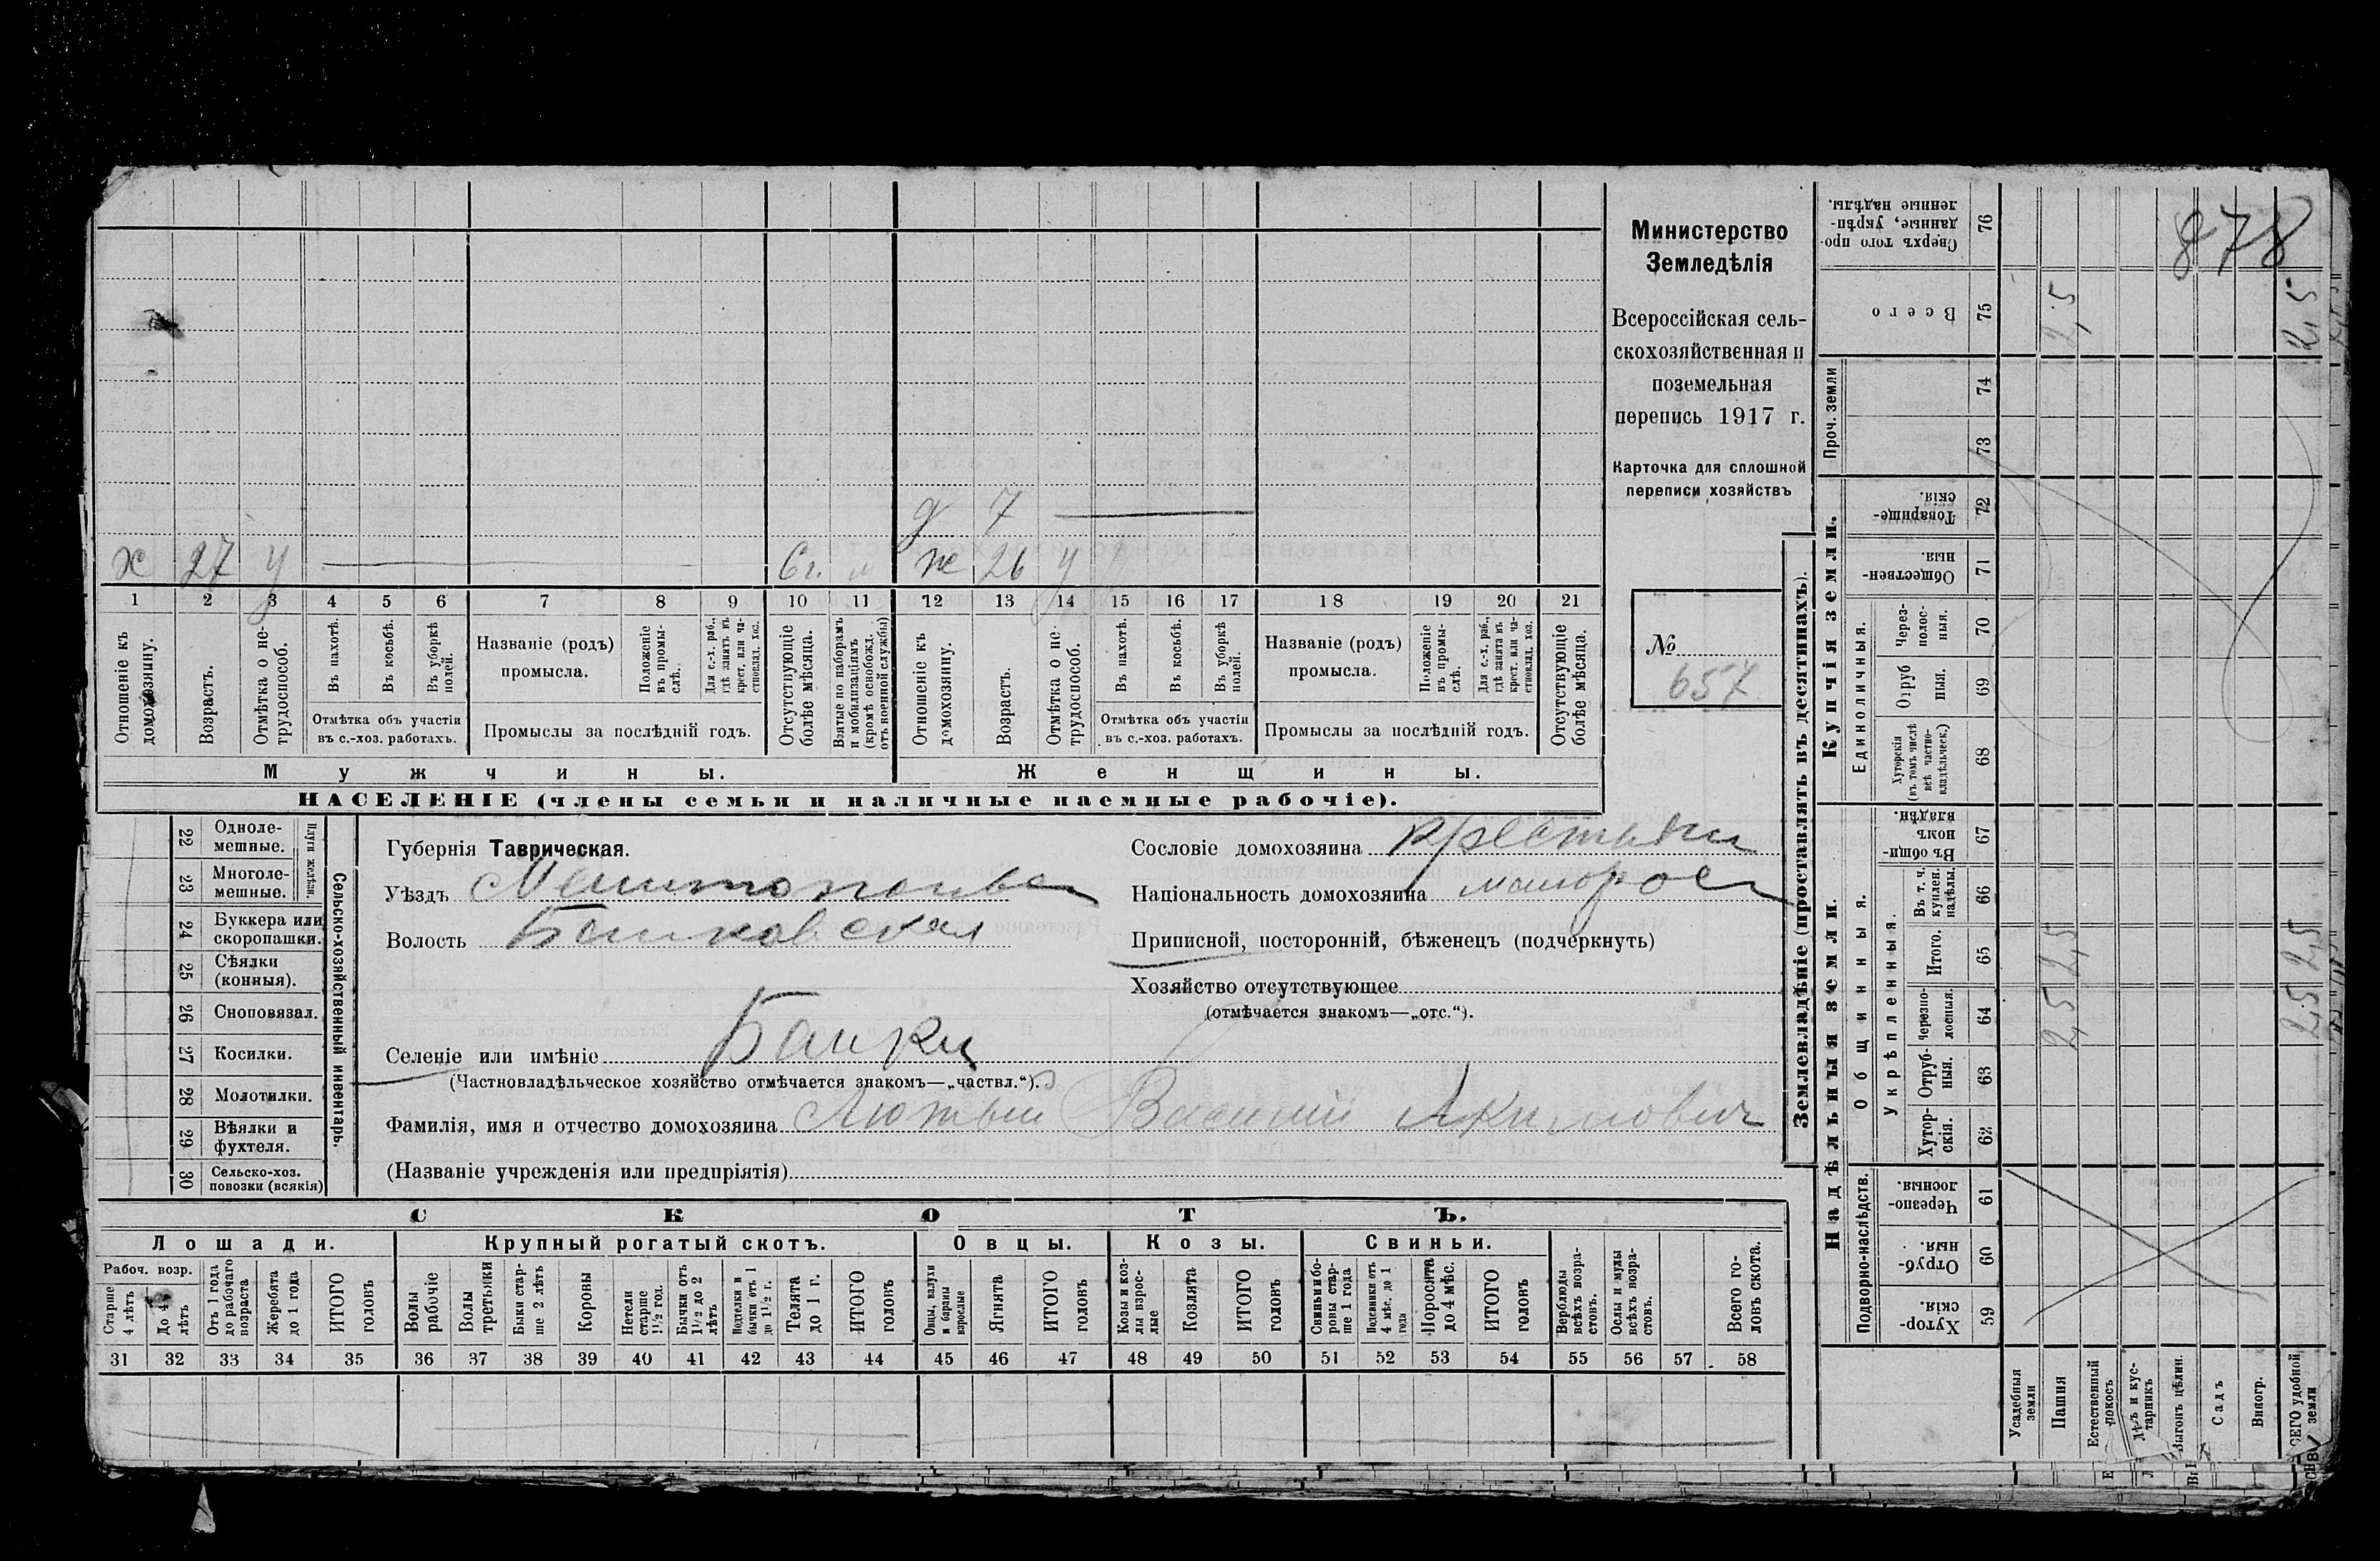 878
Министерство
Земледѣлія
Всероссійская сель-
скохозяйственная и
поземельная
перепись 1917 г.
Карточка для сплошной
переписи хозяйствъ
№
657
д 7
х 27 у 6 г. ж 26 у
1 2 3 4 5 6 7 8 9 10 11 12 13 14 15 16 17 18 19 20 21
Отношеніе къ домохозяину.
Возрастъ.
Отмѣтка о не-трудоспособ.
Въ пахотѣ.
Въ косьбѣ.
Въ уборкѣ полей.
Отмѣтка объ участіи
въ с.-хоз. работахъ.
Названіе (родъ)
промысла.
Положеніе въ промы-слѣ.
Для с.-х. раб., гдѣ занятъ въ крест. или ча-стновлад. хоз.
Промыслы за послѣдній годъ.
Отсутствующіе болѣе мѣсяца.
Взятые по наборамъ и мобилизаціямъ (кромѣ освобожд. отъ военной службы)
Отношеніе къ домохозяину.
Возрастъ.
Отмѣтка о не-трудоспособ.
Въ пахотѣ.
Въ косьбѣ.
Въ уборкѣ полей.
Отмѣтка объ участіи
въ с.-хоз. работахъ.
Названіе (родъ)
промысла.
Положеніе въ промы-слѣ.
Для с.-х. раб., гдѣ занята въ крест. или ча-стновлад. хоз.
Промыслы за послѣдній годъ.
Отсутствующіе болѣе мѣсяца.
Мужчины. Женщины.
НАСЕЛЕНІЕ (члены семьи и наличные наемные рабочіе).
22 Одноле-мешные.
23 Многоле-мешные.
Плуги желѣзн.
24 Буккера или скоропашки.
25 Сѣялки (конныя).
26 Сноповязал.
27 Косилки.
28 Молотилки.
29 Вѣялки и фухтеля.
30 Сельско-хоз. повозки (всякія)
Сельско-хозяйственный инвентарь.
Губернія Таврическая.
Уѣздъ Мелитопольск
Волость Балковская
Селеніе или имѣніе Балки
(Частновладѣльческое хозяйство отмѣчается знакомъ—„частвл.“).
Фамилія, имя и отчество домохозяина Лютый Василий Якимович
(Названіе учрежденія или предпріятія)
Сословіе домохозяина крестьян
Національность домохозяина малорос
Приписной, посторонній, бѣженецъ (подчеркнуть)
Хозяйство отсутствующее
(отмѣчается знакомъ—„отс.“).
СКОТЪ.
Лошади. Крупный рогатый скотъ. Овцы. Козы. Свиньи.
Рабоч. возр.
Старше 4 лѣтъ
До 4 лѣтъ
Отъ 1 года до рабочаго возраста
Жеребята до 1 года
ИТОГО головъ
Волы рабочіе
Волы третьяки
Быки стар-ше 2 лѣтъ
Коровы
Нетели старше 1½ год.
Бычки отъ 1½ до 2 лѣтъ
Подтелки и бычки отъ 1 до 1½ г.
Телята до 1 г.
ИТОГО головъ
Овцы, валухи и бараны взрослые
Ягнята
ИТОГО головъ
Козы и коз-лы взрос-лые
Козлята
ИТОГО головъ
Свиньи и бо-ровы стар-ше 1 года
Подсвинки отъ 4 мѣс. до 1 года
Поросята до 4 мѣс.
ИТОГО головъ
Верблюды всѣхъ возра-стовъ.
Ослы и мулы всѣхъ возра-стовъ.
Всего го-ловъ скота.
31 32 33 34 35 36 37 38 39 40 41 42 43 44 45 46 47 48 49 50 51 52 53 54 55 56 57 58
Землевладѣніе (проставлять въ десятинахъ).
Надѣльныя земли.
Купчія земли.
Проч. земли
Подворно-наслѣдств.
Общинныя.
Укрѣпленныя.
Единоличныя.
Сверхъ того про-данные, укрѣп-ленные надѣлы. 76
Всего 75 2,5 2,5
74
73
Товарище-скія. 72
Обществен-ныя. 71
Через-полос-ныя. 70
Отруб-ныя. 69
Хуторскія (въ томъ числѣ всѣ частно-владѣльческ.) 68
Въ общин-номъ владѣн. 67
Въ т. ч. куплен. надѣлы. 66
Итого. 65 2,5 2,5
Черезпо-лосныя. 64 2,5 2,5
Отруб-ныя. 63
Хутор-скія. 62
Черезпо-лосныя. 61
Отруб-ныя. 60
Хутор-скія. 59
Усадебныя земли
Пашня
Естественный покосъ
Лѣсъ и кус-тарникъ
Выгонъ цѣлин.
Садъ
Виногр.
ВСЕГО удобной земли